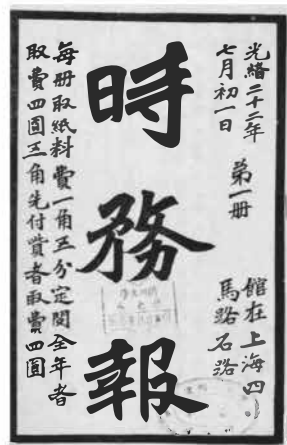 光緒二十二年
七月初一日
第一册
館在上海四
馬路石路
時務報
每册取紙料費一角五分定閱全年者
取費四圓三角先付貲者取費四圓